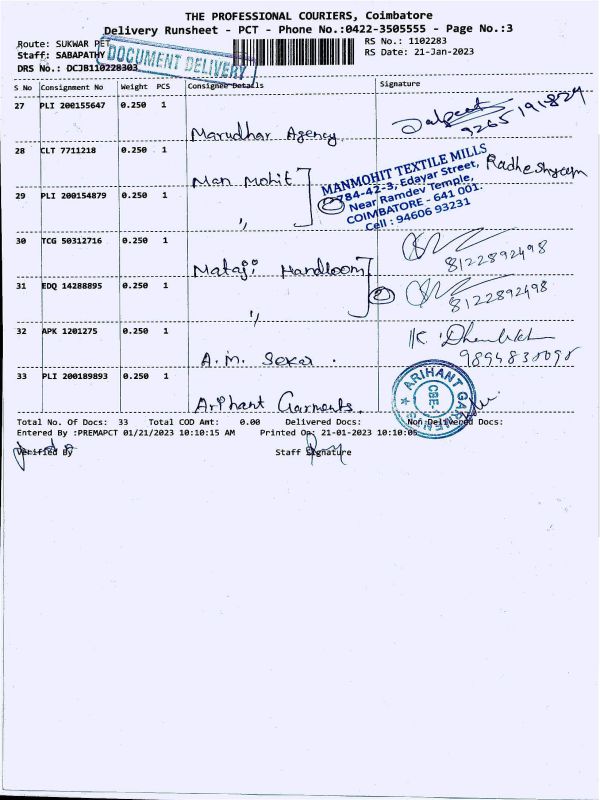 THE PROFESSIONAL COURIERS, Coimbatore
Delivery Runsheet - PCT - Phone No.:0422-3505555 - Page No.:3
Route: SUKWAR PET
RS No.: 1102283
Staff: SABAPATHY
DOCUMENT DELIVERY
RS Date: 21-Jan-2023
DRS No.: DCJB110228303
S No Consignment No Weight PCS Consignee Details Signature
27 PLI 200155647 0.250 1
Marudhar Agency
9265191824
28 CLT 7711218 0.250 1
Man Mohit
MANMOHIT TEXTILE MILLS
784-42-3, Edayar Street,
Near Ramdev Temple,
COIMBATORE - 641 001.
Cell : 94606 93231
Radheshyam
29 PLI 200154879 0.250 1
,,
30 TCG 50312716 0.250 1
Mataji Handloom
8122892498
31 EDQ 14288895 0.250 1
,,
2
8122892498
32 APK 1201275 0.250 1
A.M. Sekar.
33 PLI 200189893 0.250 1
Arihant Garments.
ARIHANT GARMENTS
CBE-1
Total No. Of Docs: 33 Total COD Amt: 0.00 Delivered Docs: Non Delivered Docs:
Entered By :PREMAPCT 01/21/2023 10:10:15 AM Printed On: 21-01-2023 10:10:05
Verified By Staff Signature